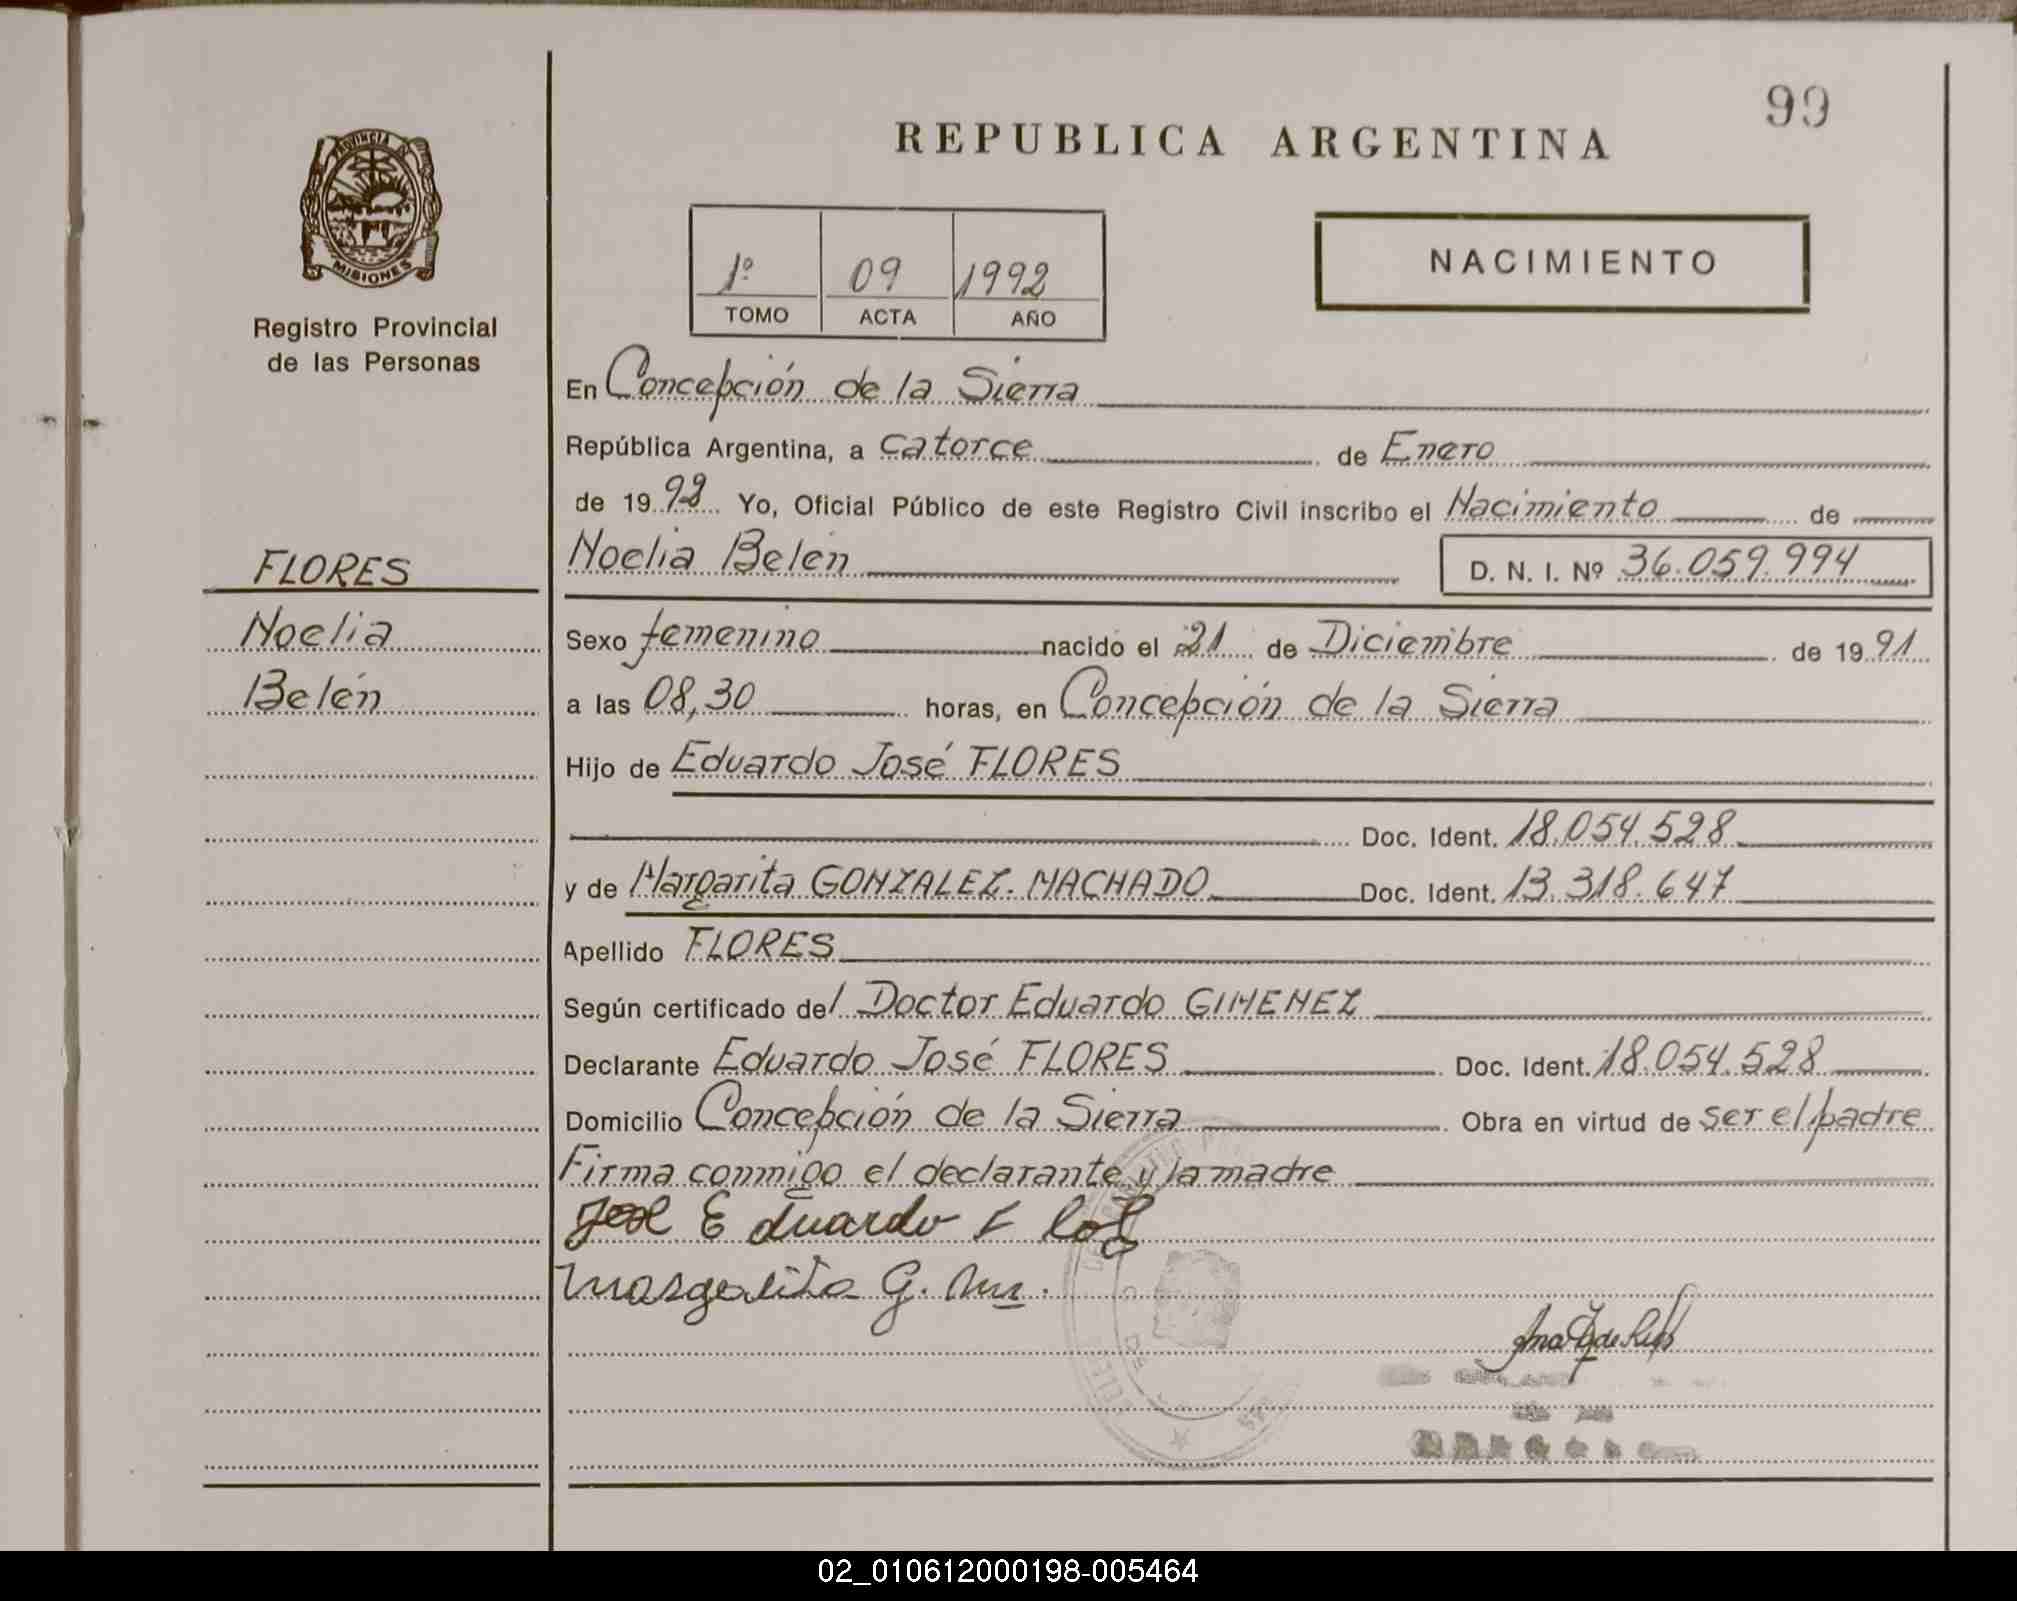 99
REPUBLICA ARGENTINA
PROVINCIA DE
MISIONES
Registro Provincial
de las Personas
1º 09 1992
TOMO ACTA AÑO
NACIMIENTO
En Concepción de la Sierra
República Argentina, a catorce de Enero
de 1992 Yo, Oficial Público de este Registro Civil inscribo el Nacimiento de
Noelia Belén D. N. I. Nº 36.059.994
FLORES
Noelia
Belén
Sexo femenino nacido el 21 de Diciembre de 1991
a las 08,30 horas, en Concepción de la Sierra
Hijo de Eduardo José FLORES
Doc. Ident. 18.054.528
y de Margarita GONZALEZ. MACHADO Doc. Ident. 13.318.647
Apellido FLORES
Según certificado del Doctor Eduardo GIMENEZ
Declarante Eduardo José FLORES Doc. Ident. 18.054.528
Domicilio Concepción de la Sierra Obra en virtud de ser el padre
Firma conmigo el declarante y la madre
Eduardo
Margarita G.
02_010612000198-005464